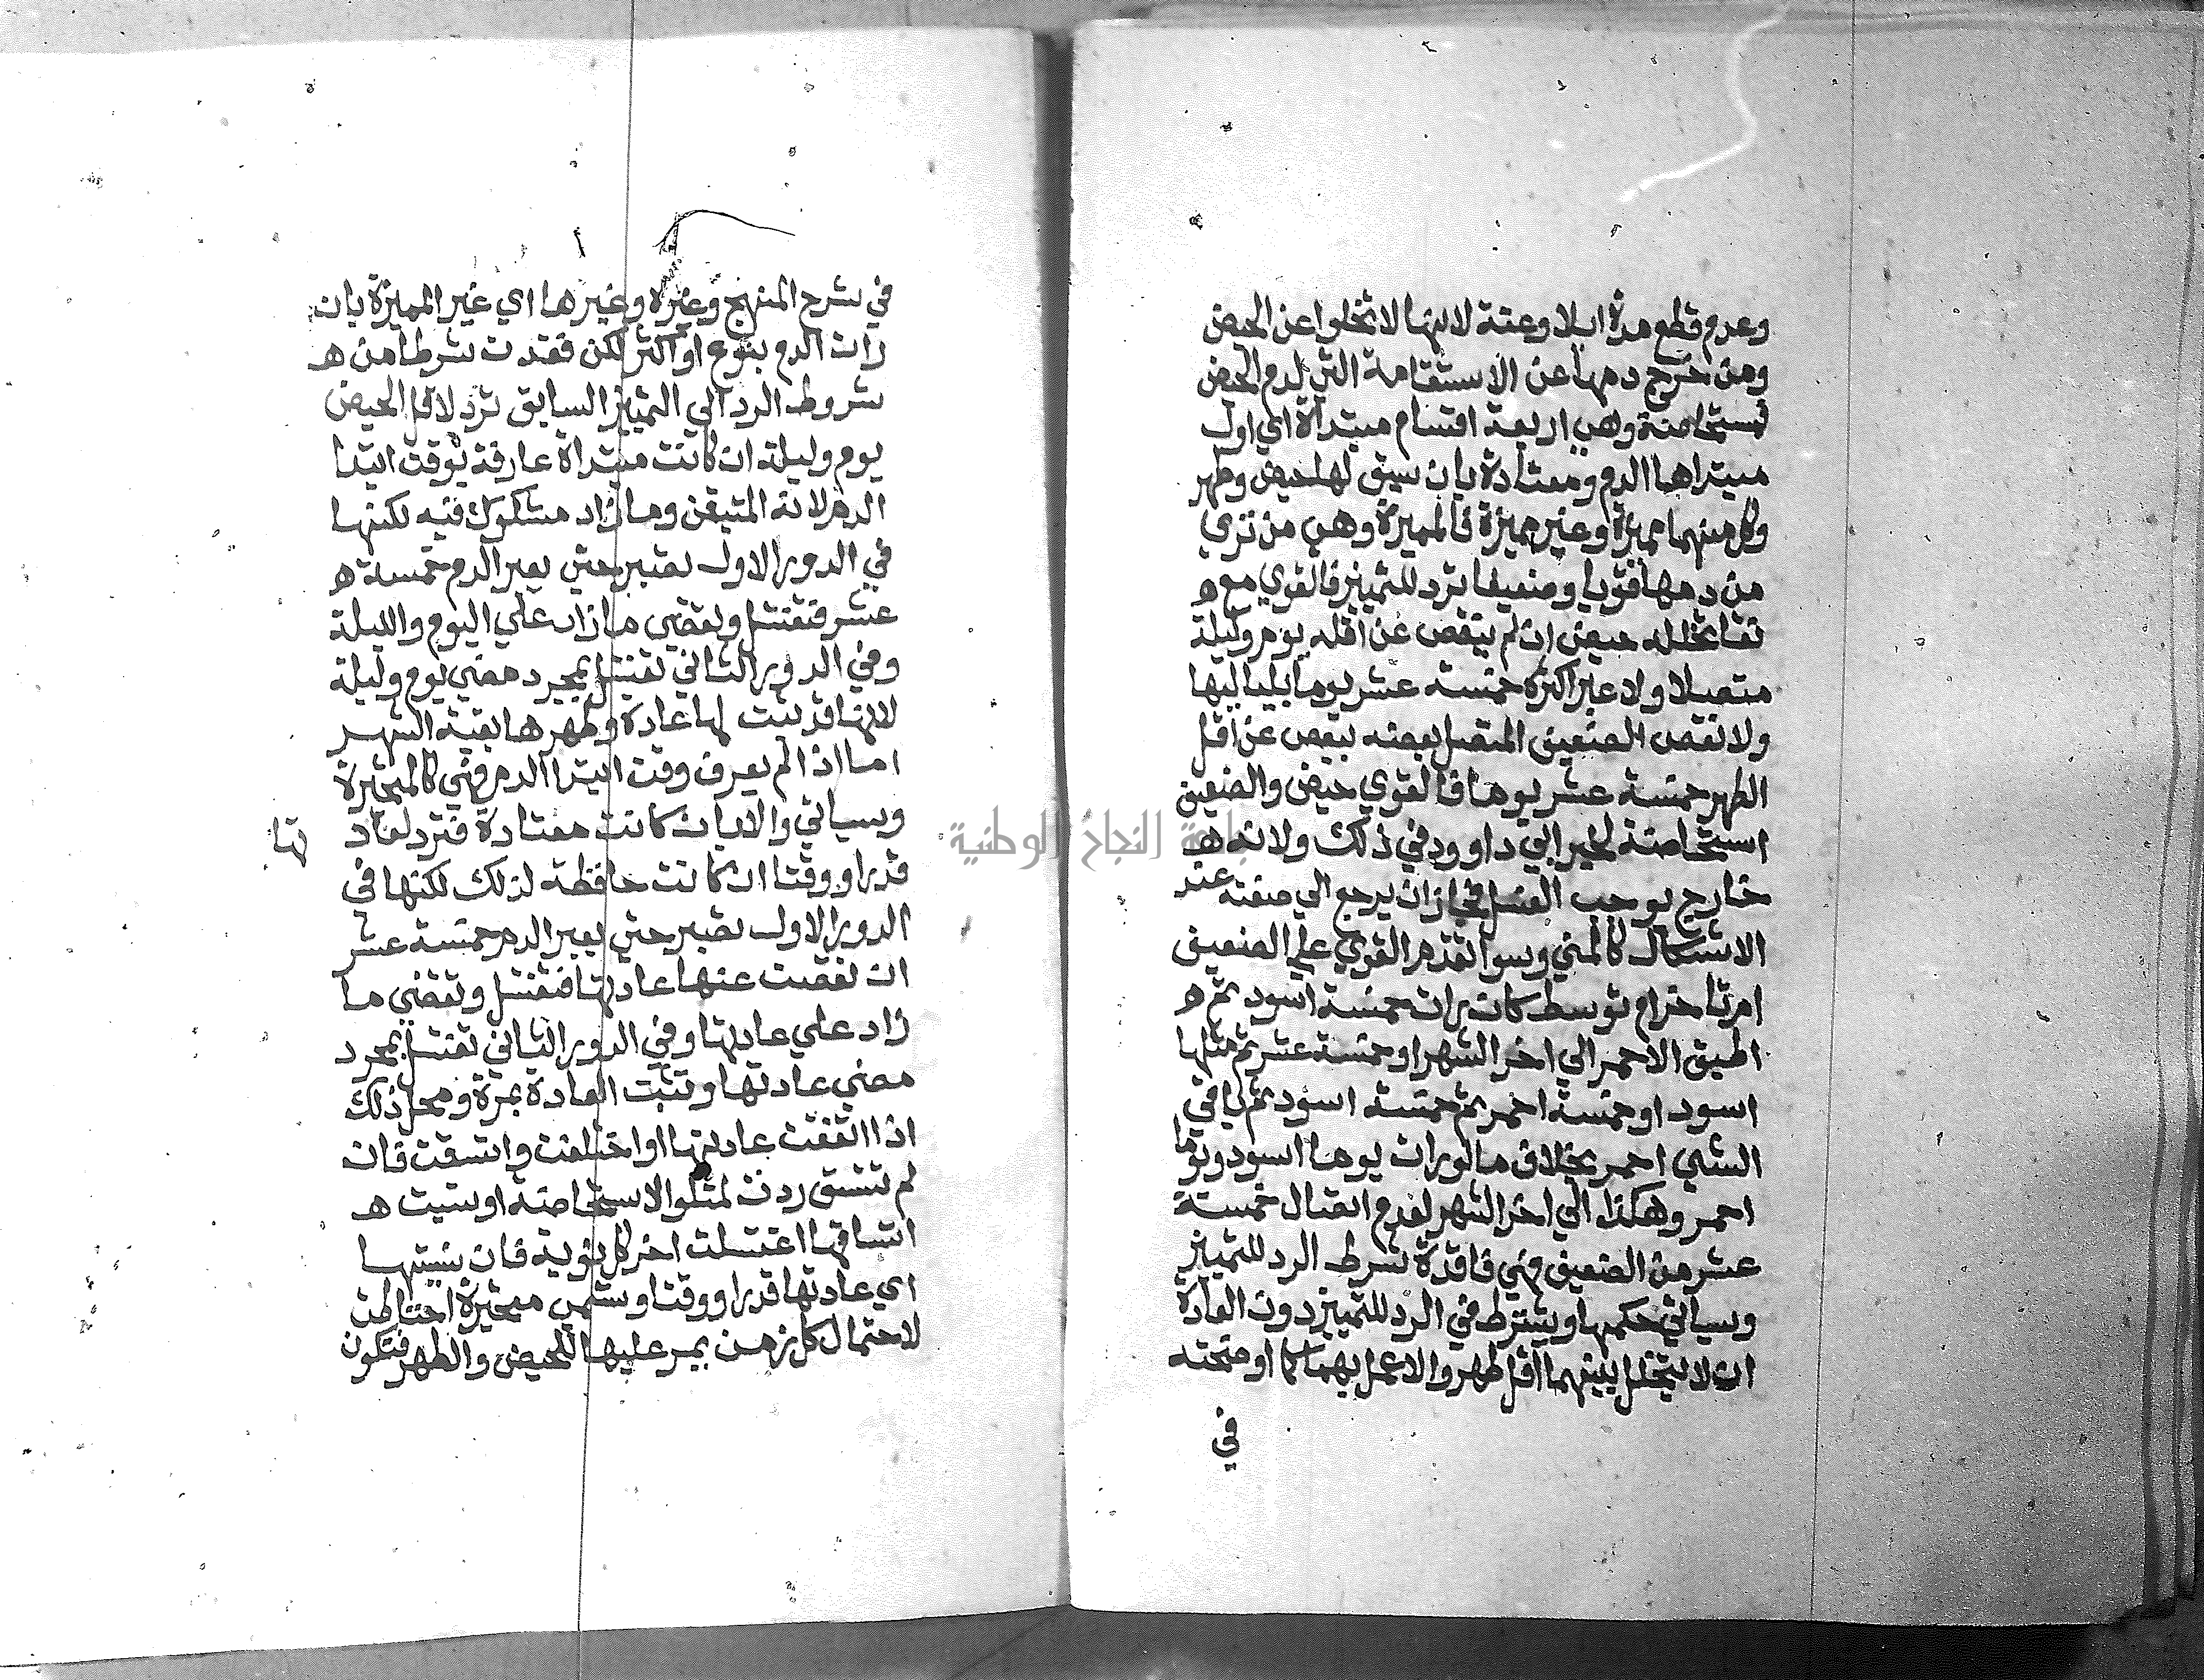 وعدم قطع مدة ايلا وعنة لانها لا تخلوا عن الحيض
ومن خرج دمها عن الاستقامة التي لدم الحيض
تستحاضة وهي اربعة اقسام مبتداة اي اول
مبتداها الدم ومعتادة بان سبق لها حيض وطهر
وكل منهما مميزة وغير مميزة فالمميزة وهي من تري
من دمها قويا وضعيفا ترد للتمييز فالقوي مع ه
نقا تخلله حيض ان لم ينقص عن اقله يوم وليلة
متصلا ولا عبر اكثره خمسة عشر يوما بلياليها
ولا نقص الضعيف المتصل بعضه ببعض عن اقل
الطهر خمسة عشر يوما فالقوي حيض والضعيف
استحاضة لخبر ابي داوود في ذلك ولانه ه
خارج يوجب الغسل فجاز ان يرجع الي صفته عند
الاشكال كالمني وسوا تقدم القوي علي الضعيف
ام تاخر ام توسط كان رات خمسة اسود ثم ه
اطبق الاحمر الي اخر الشهر او خمسة عشر ثم مثلها
اسود او خمسة احمر ثم خمسة اسود ثم باقي
الشهر احمر بخلاف ما لو رات يوما اسود ويوما
احمر وهكذا الي اخر الشهر لعدم اتصال خمسة
عشر من الضعيف فهي فاقدة شرط الرد للتمييز
وسياتي حكمها ويشترط في الرد للتمييز دون العادة
ان لا يتخلل بينهما اقل طهر والا عمل بهما كما اوضحته
في
في شرح المنهج وغيره وغيرها اي غير المميزة بان
رات الدم بنوع او اكثر لكن فقدت شرطا من ه
شروط الرد الي التمييز السابق ترد لاقل الحيض
يوم وليلة ان كانت مبتداة عارفة بوقت ابتدا
الدم لانه المتيقن وما زاد مشكوك فيه لكنها
في الدور الاول تصبر حتي يعبر الدم خمسة ه
عشر فتغتسل وتقضي ما زاد علي اليوم والليلة
وفي الدور الثاني تغتسل بمجرد مضي يوم وليلة
لانها قد ثبت لها عادة وطهرها بقية الشهر
اما اذا لم يعرف وقت ابتدا الدم فهي كالمتحيرة
وسياتي والا بان كانت معتادة فترد لعاد
تها
قدرا ووقتا ان كانت حافظة لذلك لكنها في
الدور الاول تصبر حتي يعبر الدم خمسة عشر
ان نقصت عنها عادتها فتغتسل وتقضي ما
زاد علي عادتها وفي الدور الثاني تغتسل بمجرد
مضي عادتها وتثبت العادة بمرة ومحل ذلك
اذا اتفقت عادتها او اختلفت واتسقت فان
لم تتسق ردت لمتلو الاستحاضة او نسيت ه
اتساقها اغتسلت اخر كل نوبة فان نسيتها
اي عادتها قدرا ووقتا وتسمي متحيرة احتاطت
لاحتمال كل زمن يمر عليها للحيض والطهر فتكون
جامعة النجاح الوطنية